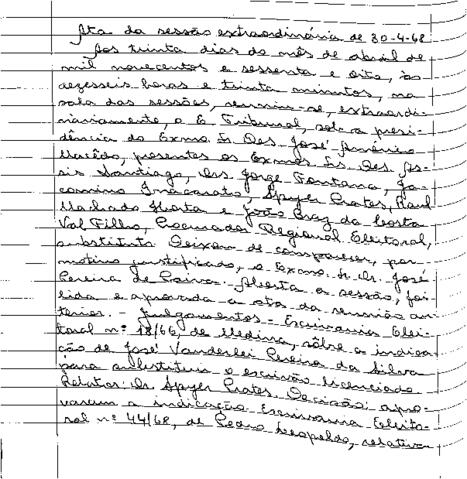 Ata da sessão extraordinária de 30-4-68
Aos trinta dias do mês de abril de
mil novecentos e sessenta e oito, às
dezesseis horas e trinta minutos, na
sala das sessões, reuniu-se, extraordi-
nariamente, o E. Tribunal, sob a presi-
dência do Exmo. Sr. Des. José Américo
Macêdo, presentes os Exmos. Srs. Des. As-
sis Santiago, Drs. Jorge Fontana, Ja-
comino Inacarato, Spyer Prates, Raul
Machado Horta e João Braz da Costa
Val Filho, Procurador Regional Eleitoral,
substituto. Deixou de comparecer, por
motivo justificado, o Exmo. Sr. Dr. José
Pereira de Paiva. Aberta a sessão, foi
lida e aprovada a ata da reunião an-
terior. - Julgamentos - Escrivania Elei-
toral nº 18/66, de Medina, sôbre a indica-
ção de José Vanderlei Pereira da Silva
para substituir o escrivão licenciado
Relator: Dr. Spyer Prates. Decisão: apro-
varam a indicação. Escrivania Eleito-
ral nº 44/68, de Pedro Leopoldo, relativa